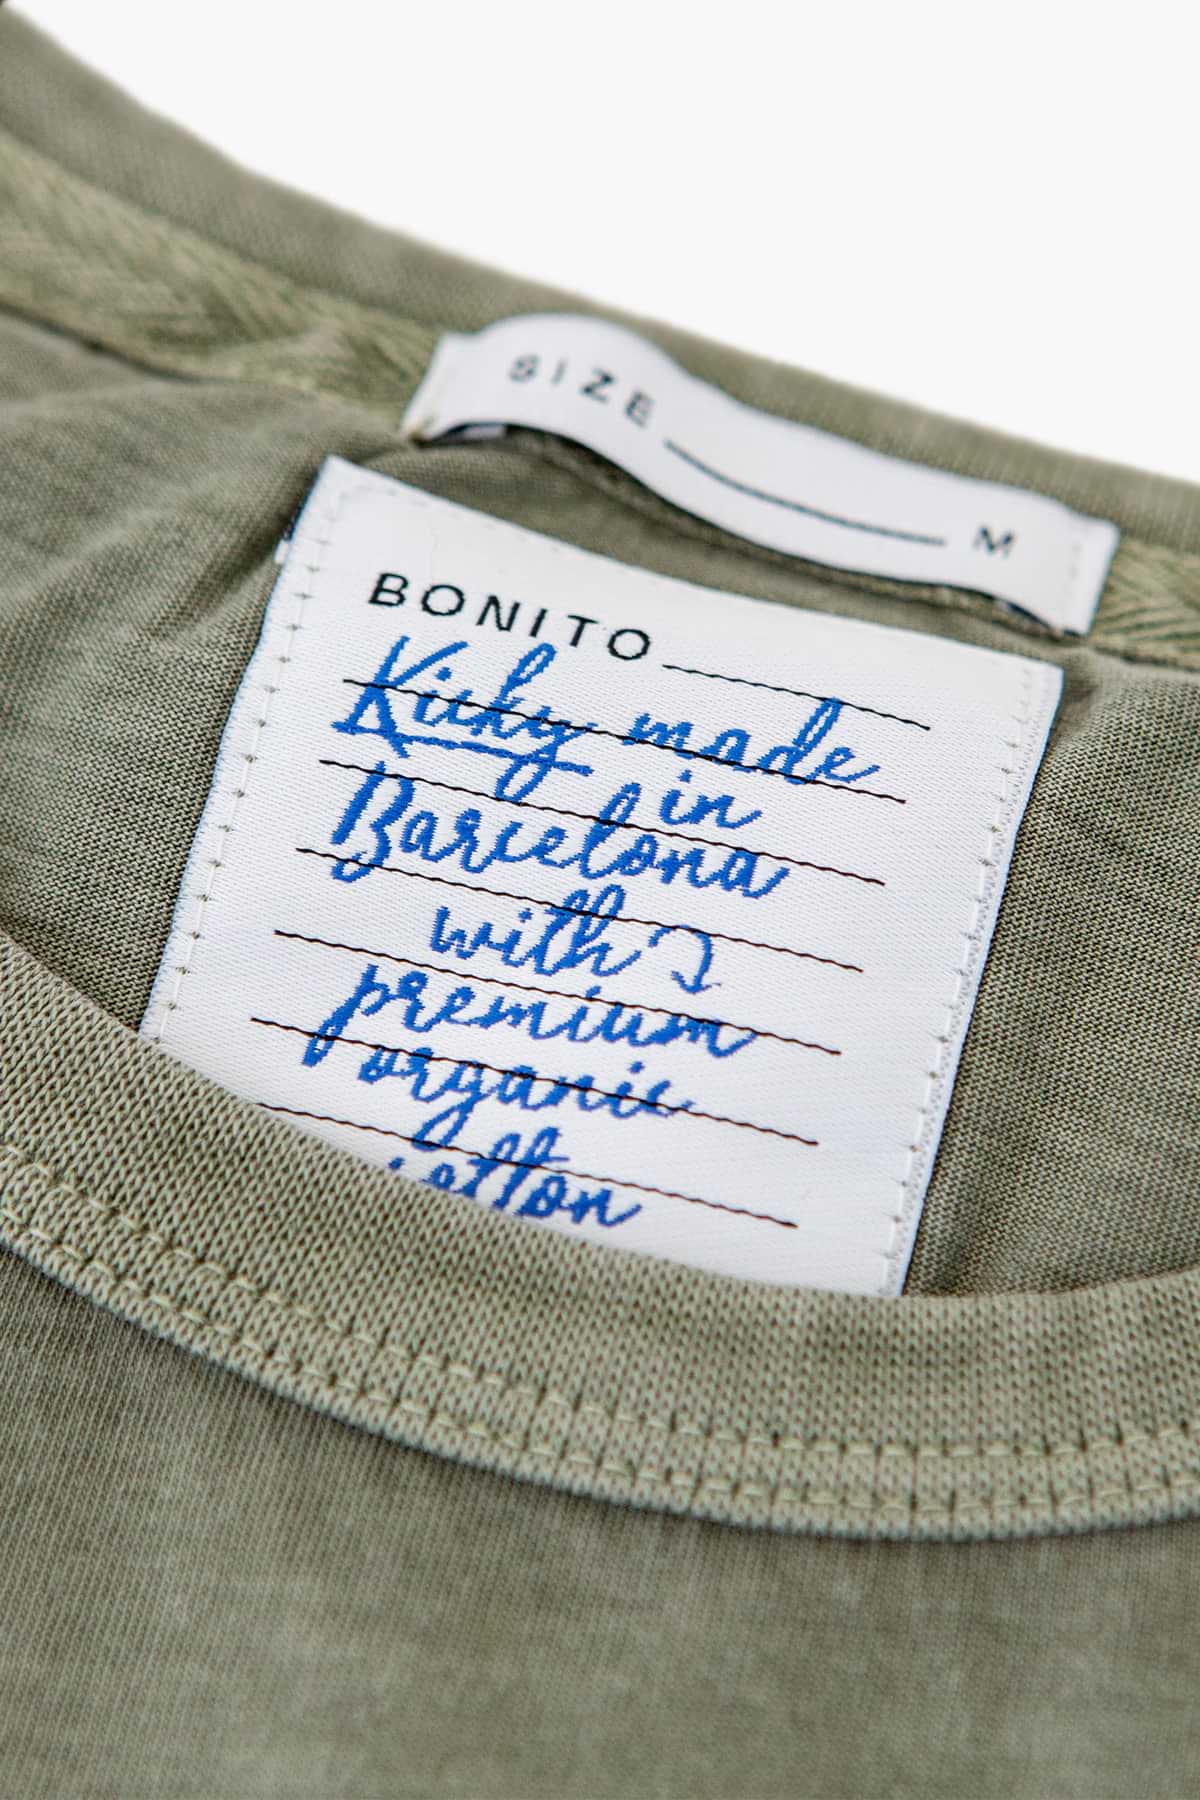 SIZE M
BONITO
Kicky made
in
Barcelona
with
premium
organic
cotton